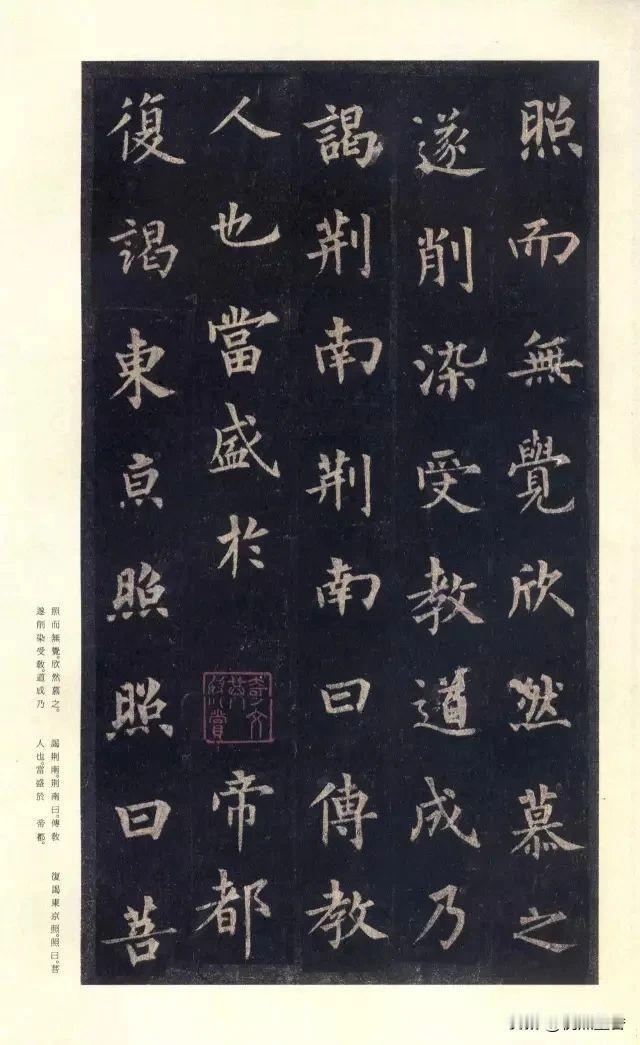 照而無覺欣然慕之
遂削染受教道成乃
謁荆南荆南曰傳教
人也當盛於 帝都
復謁東京照照曰菩
照而無覺。欣然慕之。
遂削染受敎。道成乃
謁荆南。荆南曰。傳敎
人也。當盛於 帝都。
復謁東京照。照曰。菩